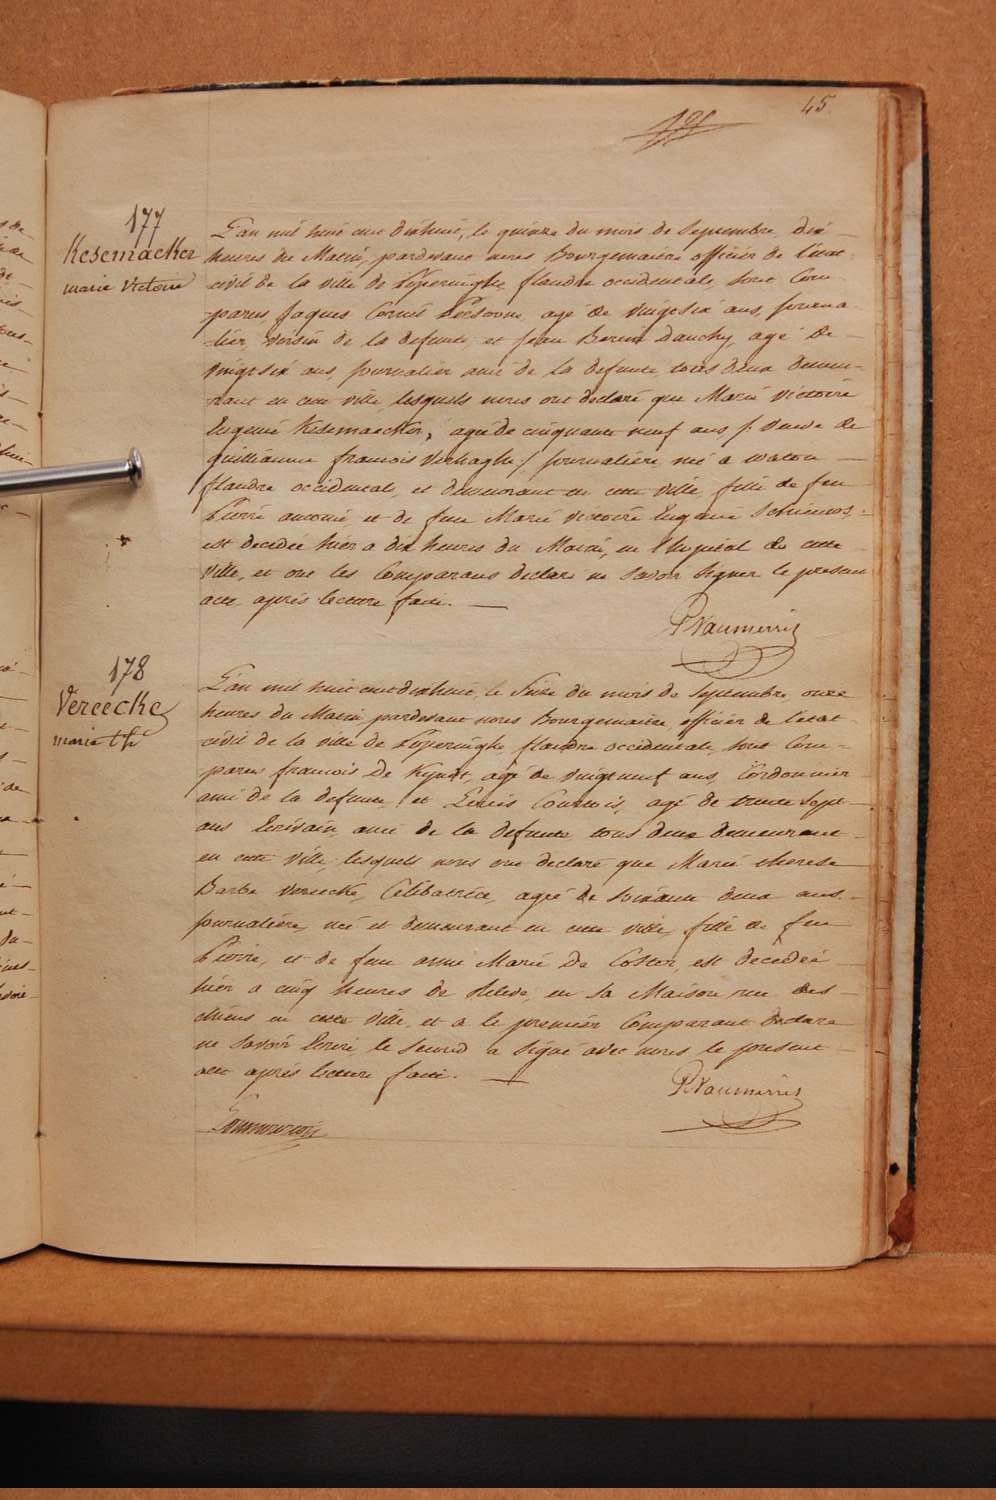 45.
177
Kesemaeker
marie Victoire
L'an mil huit cent dixhuit, le quinze du mois de Septembre, dix
heures du Matin, pardevant nous Bourgemaitre officier de l'etat
civil de la ville de Poperinghe, flandre occidentale, sont Com-
parus, Jaques Corneil age de vingt six ans, journa-
lier, voisin de la defunte, et Jean Dauchy, agé de
vingt six ans, journalier ami de la defunte tous deux demeu-
rant en cette ville, lesquels nous ont declaré que Marie victoire
Eugenie Kesemaecker, agée de cinquante neuf ans /. veuve de
guilliaume francois Verhaeghe / journalière, né a watou
flandre occidentale, et demeurant en cette ville, fille de feu
Pierre antoine, et de feue Marie victoire Eugenie
est decedée hier a dix heures du Matin, en l'hopital de cette
ville, et ont les Comparans declaré ne savoir signer le present
acte, après lecture faite.
178
Vereecke
marie th
L'an mil huit cent dixhuit, le Seize du mois de Septembre, onze
heures du Matin, pardevant nous Bourgemaitre, officier de l'etat
civil de la ville de Poperinghe, flandre occidentale, sont Com-
parus francois De agé de vingt neuf ans, Cordonnier
ami de la defunte, et Louis Courtois, agé de trente sept
ans Ecrivain, ami de la defunte tous deux demeurant
en cette ville, lesquels nous ont declaré que Marie therese
Barbe Vereecke, Célibatrice, agée de soixante deux ans
journalière, né et demeurant en cette ville, fille de feu
Pierre, et de feue anne Marie De Coster, est decedée
hier a cinq heures de relevée, en sa Maison rue des
chiens en cette ville, et a le premier Comparant declaré
ne savoir Ecrire le second a signé avec nous le present
acte après lecture faite.